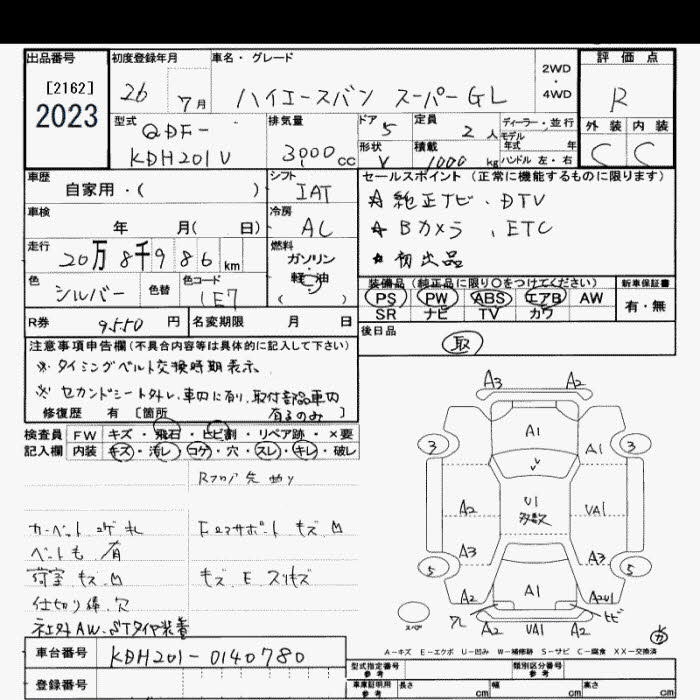 出品番号 初度登録年月 車名・グレード 2WD・4WD 評価点
[2162]
2023
26 7月 ハイエースバン スーパーGL R
型式 QDF- 排気量 ドア 5 定員 2人 ディーラー・並行 外装 内装
モデル年式 年
KDH201V 3000cc 形状 V 積載 1000kg ハンドル 左・右 C C
車歴 シフト セールスポイント (正常に機能するものに限ります)
自家用・( ) IAT ☆純正ナビ・DTV
車検 冷房 ☆Bカメラ、ETC
年 月( 日) AC ☆初出品
走行 燃料
20万8千986km ガソリン
色 色替 色コード 軽・油 装備品 (純正品に限り○をつけてください) 新車保証書
シルバー 1E7 ( ) PS PW ABS エアB AW 有・無
SR ナビ TV カワ
R券 9550円 名変期限 月 日 後日品
取
注意事項申告欄(不具合内容等は具体的に記入して下さい)
※タイミングベルト交換時期表示。
※セカンドシート外し、車内に有り、取付部品車内
修復歴 有 [箇所 有るのみ]
検査員 FW キズ・飛石・ヒビ割・リペア跡・×要
記入欄 内装 キズ・汚レ・コゲ・穴・スレ・キレ・破レ
カーペットコゲ 汚れ
荷室 キズ
仕切り棒、穴
社外AW、STタイヤ装着
A3 A2
3 A1 A1 3
A2 U1 多数 UA1
A3 A3
5 A1 5
A2 A2U1
ワレ ヒビ
スペア A2 UA1 A2
A-キズ E-エクボ U-凹み W-補修跡 S-サビ C-腐食 XX-交換済
車台番号 KDH201-0140780
型式指定番号 参考 類別区分番号 参考
登録番号 車庫証明用 参考 長さ cm 幅 cm 高さ cm